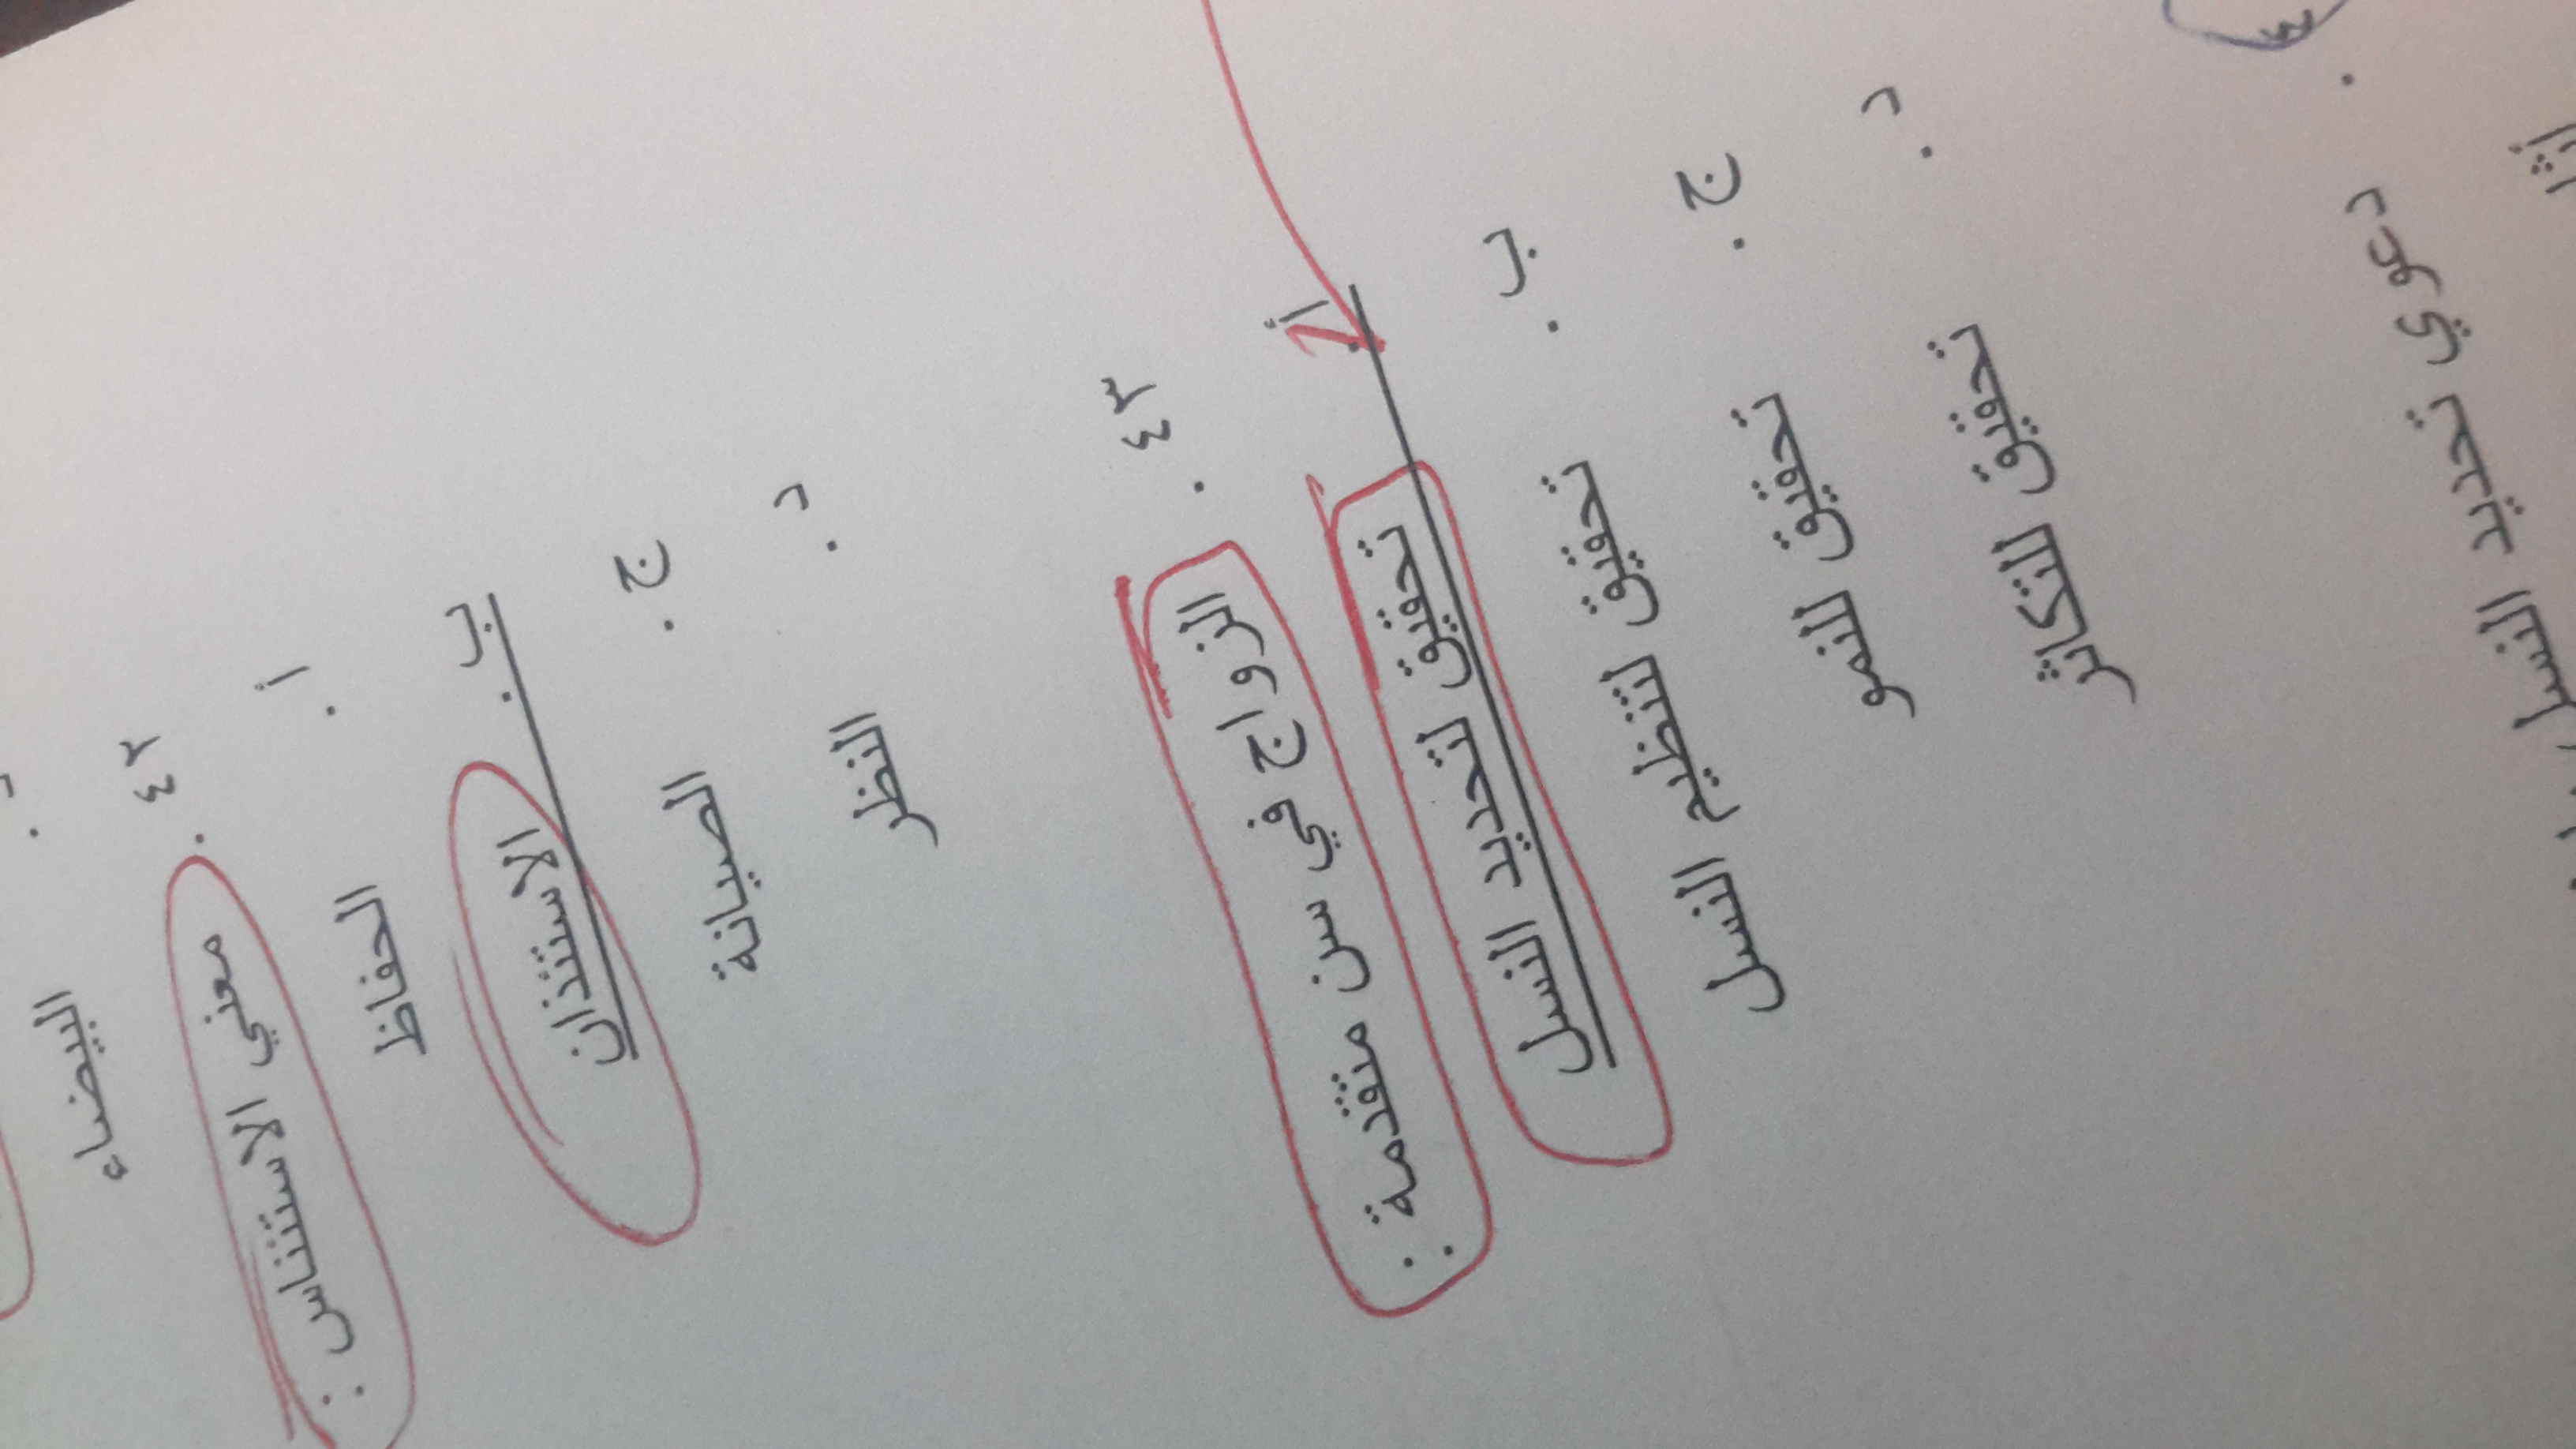 البيضاء
٤٢. معني الاستئناس :
أ. الحفاظ
ب. الاستئذان
ج. الصيانة
د. النظر
٤٣. الزواج في سن متقدمة :
أ. تحقيق لتحديد النسل
ب. تحقيق لتنظيم النسل
ج. تحقيق للنمو
د. تحقيق للتكاثر
دعوي تحديد النسل